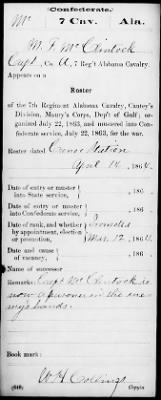 Confederate.
Mc 7 Cav. Ala.
M. F. McClintock
Capt, Co. A, 7 Reg't Alabama Cavalry.
Appears on a
Roster
of the 7th Regiment Alabama Cavalry, Cantey's
Division, Maury's Corps, Dep't of Gulf; or-
ganized July 22, 1863, and mustered into Con-
federate service, July 22, 1863, for the war.
Roster dated Station
April 14, 1864.
Date of entry or muster
into State service, 186 .
Date of entry or muster
into Confederate service, 186 .
Date of rank, and whether
by appointment, election
or promotion, Promoted
Mar. 12, 1864
Date and cause
of vacancy, 186 .
Name of successor
Remarks: Capt McClintock is
now a prisoner in the ene
my's hands.
Book mark:
W H Collings
(640) Copyist.